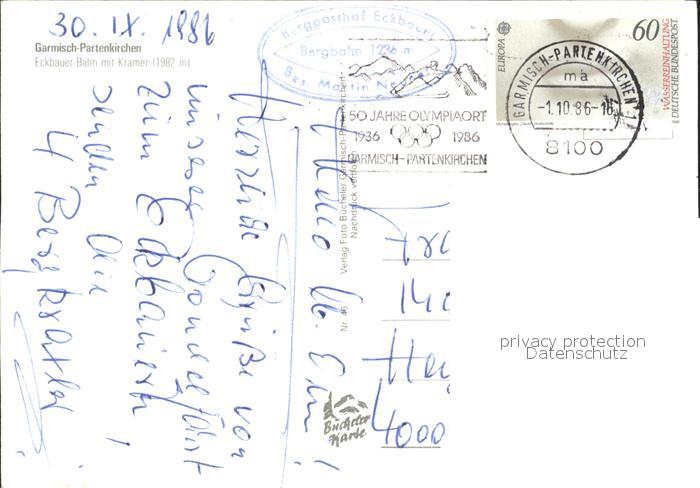 30. IX. 1986
Garmisch-Partenkirchen
Eckbauer-Bahn mit Kramer (1982 m)
Berggasthof Eckbauer
Bergbahn 1236 m
Bes. Martin
50 JAHRE OLYMPIAORT
1936 1986
GARMISCH-PARTENKIRCHEN
EUROPA
60
WASSERREINHALTUNG
DEUTSCHE BUNDESPOST
GARMISCH-PARTENKIRCHEN
ma
-1.10.86-18
8100
Verlag Foto Bücheler Garmisch-Partenkirchen
Nachdruck verboten
Nr. 46
Bücheler
Karte
Herzliche Grüße von
unserer Gondelfahrt
zum Eckbauern
senden Dir
4 Bergkraxler!
4000
privacy protection
Datenschutz